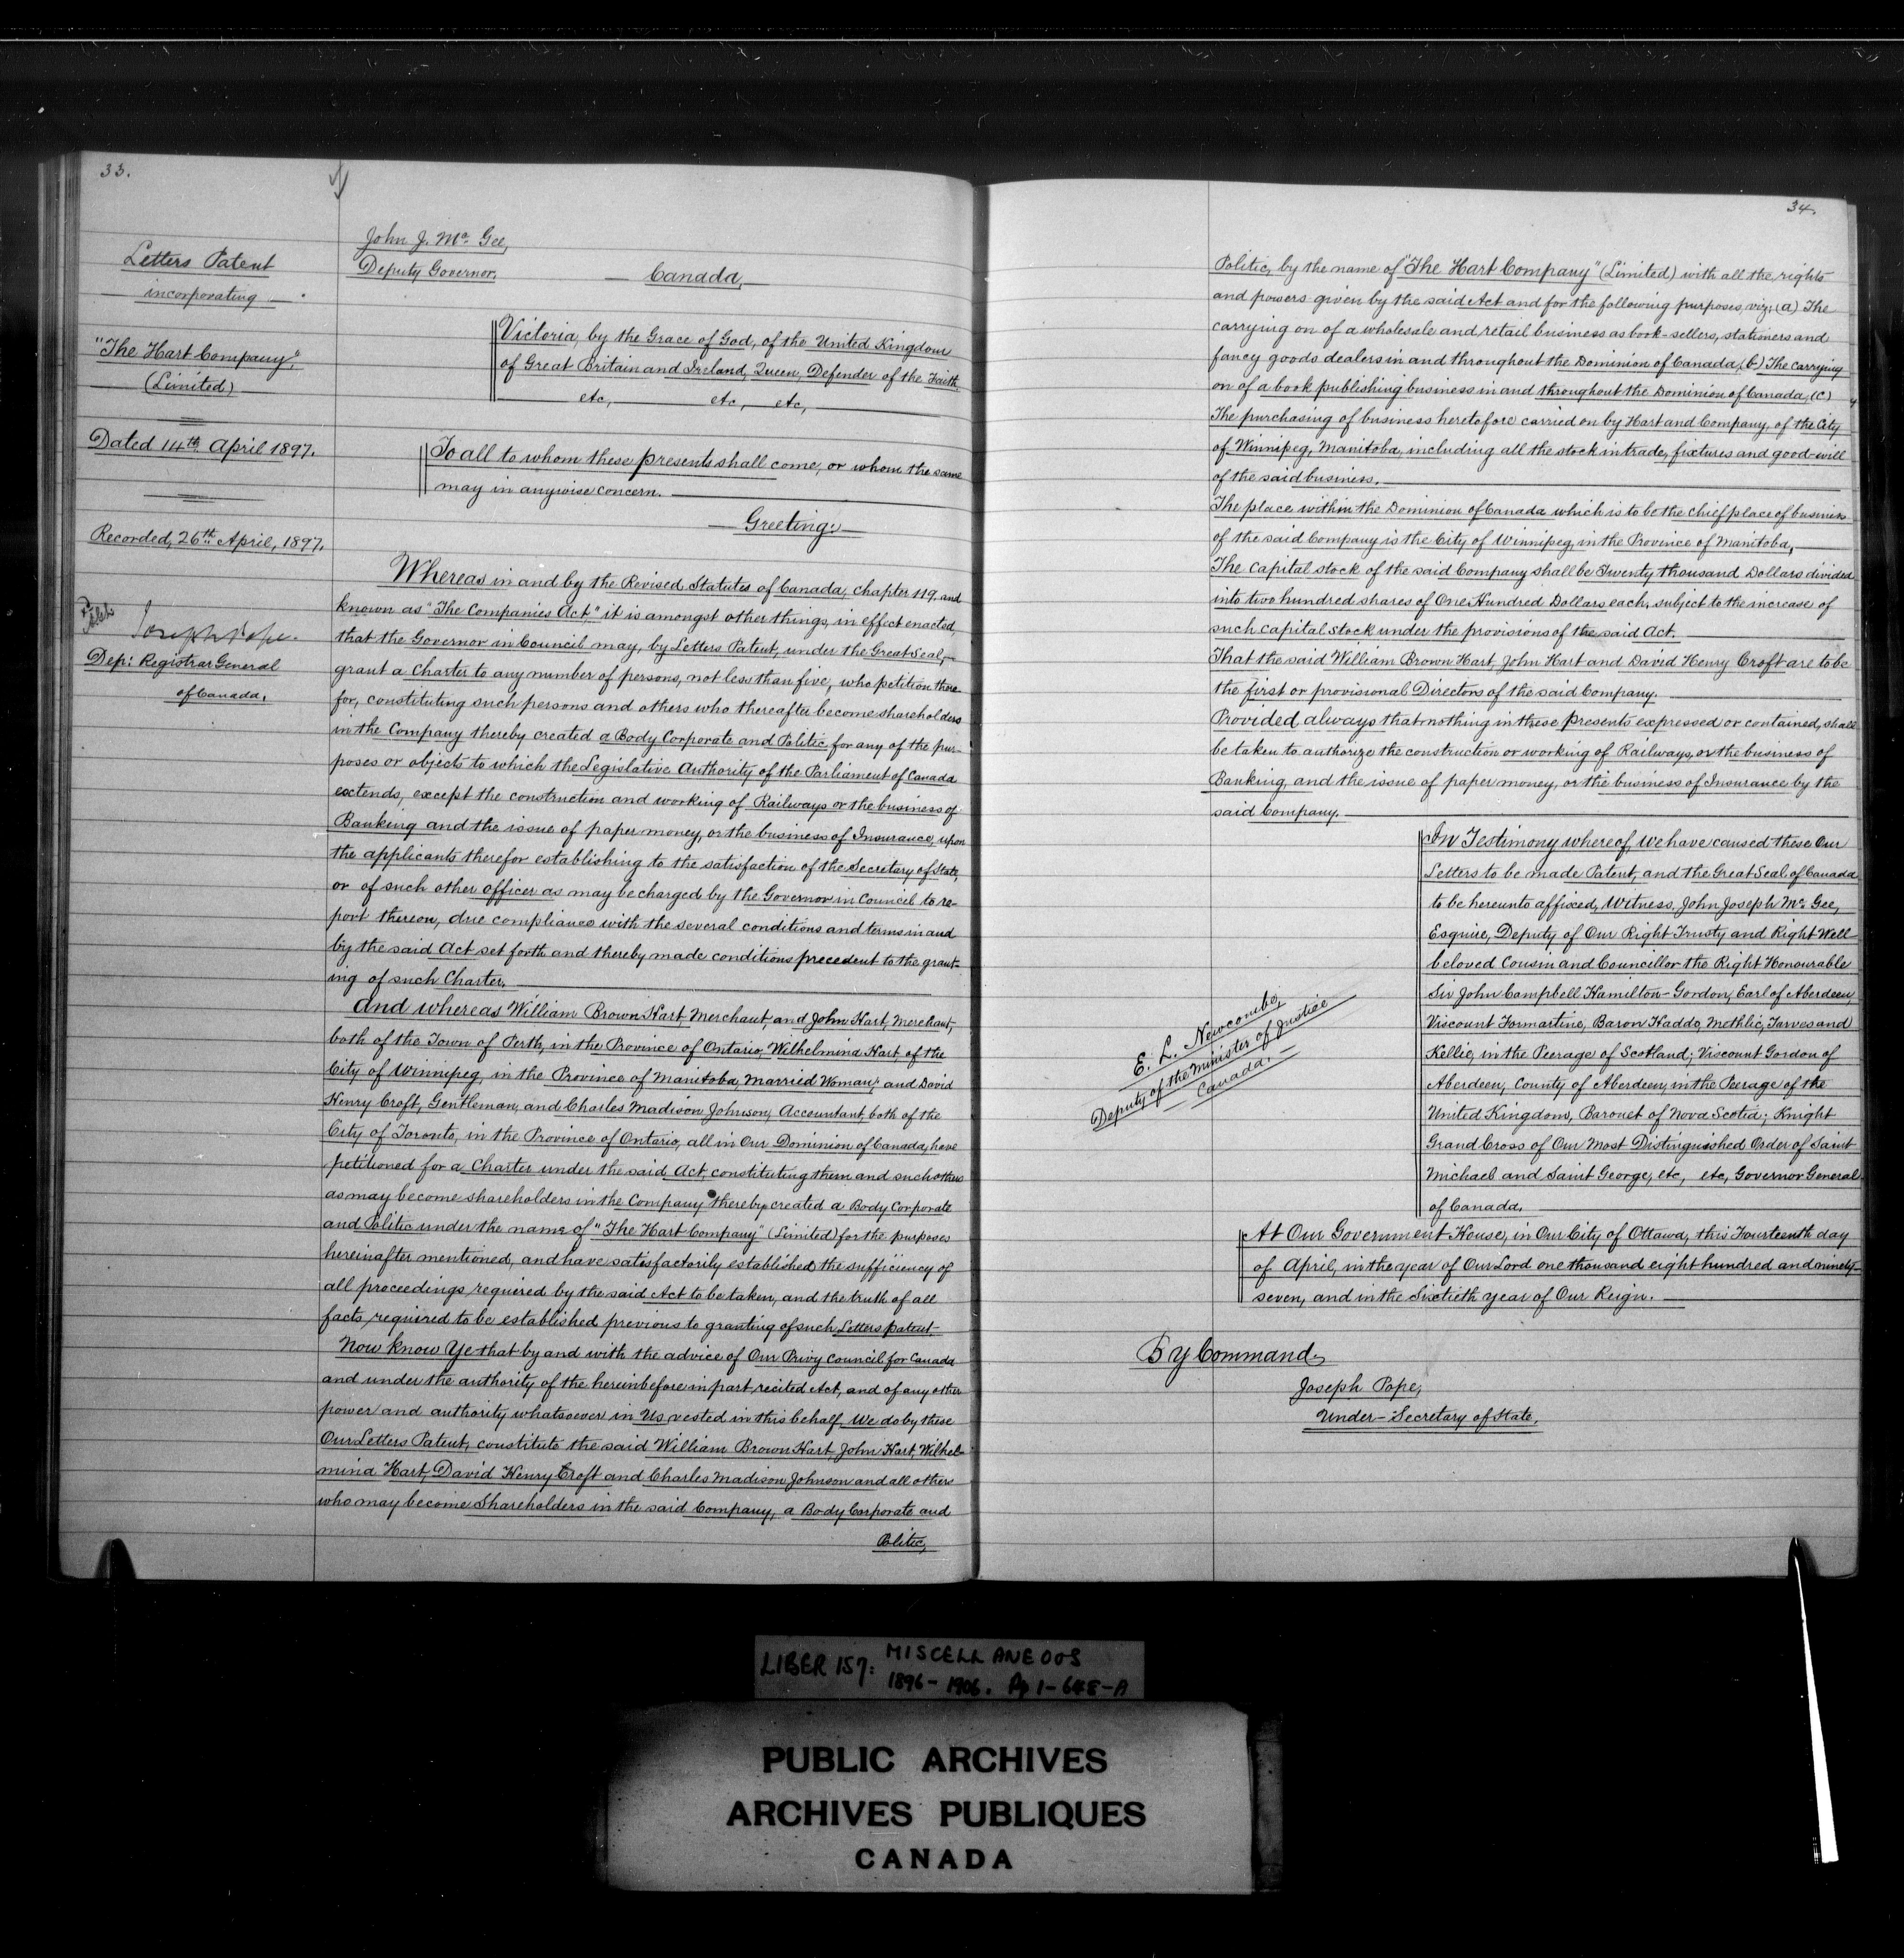 33.
Letters Patent
incorporating
"The Hart Company,"
(Limited)
Dated 14th April 1897.
Recorded, 26th April, 1897.
Joseph Pope.
Dep: Registrar General
of Canada.
John J. McGee,
Deputy Governor.
Canada,
Victoria, by the Grace of God, of the United Kingdom
of Great Britain and Ireland, Queen, Defender of the Faith
etc, etc, etc,
To all to whom these presents shall come, or whom the same
may in anywise concern.
Greeting:
Whereas in and by the Revised Statutes of Canada, chapter 119, and
known as "The Companies Act" it is amongst other things, in effect enacted,
that the Governor in Council may, by Letters Patent, under the Great Seal,
grant a Charter to any number of persons, not less than five, who petition there-
for, constituting such persons and others who thereafter become shareholders
in the Company thereby created a Body Corporate and Politic, for any of the pur-
poses or objects to which the Legislative Authority of the Parliament of Canada
extends, except the construction and working of Railways or the business of
Banking and the issue of paper money, or the business of Insurance, upon
the applicants therefor establishing to the satisfaction of the Secretary of State,
or of such other officer as may be charged by the Governor in Council to re-
port thereon, due compliance with the several conditions and terms in and
by the said Act set forth and thereby made conditions precedent to the grant-
ing of such Charter.
And whereas William Brown Hart, Merchant, and John Hart, Merchant,
both of the Town of Perth, in the Province of Ontario, Wilhelmina Hart, of the
City of Winnipeg, in the Province of Manitoba, Married Woman, and David
Henry Croft, Gentleman, and Charles Madison Johnson, Accountant, both of the
City of Toronto, in the Province of Ontario, all in Our Dominion of Canada, have
petitioned for a Charter under the said Act, constituting them and such others
as may become shareholders in the Company thereby created a Body Corporate
and Politic under the name of "The Hart Company" (Limited) for the purposes
hereinafter mentioned, and have satisfactorily established the sufficiency of
all proceedings required by the said Act to be taken, and the truth of all
facts required to be established previous to granting of such Letters patent.
Now know Ye that by and with the advice of Our Privy Council for Canada
and under the authority of the hereinbefore in part recited Act, and of any other
power and authority whatsoever in Us vested in this behalf, We do by these
Our Letters Patent, constitute the said William Brown Hart, John Hart, Wilhel-
mina Hart, David Henry Croft and Charles Madison Johnson and all others
who may become Shareholders in the said Company, a Body Corporate and
Politic,
34.
Politic, by the name of "The Hart Company" (Limited) with all the rights
and powers given by the said Act and for the following purposes, viz: (a) The
carrying on of a wholesale and retail business as book-sellers, stationers and
fancy goods dealers in and throughout the Dominion of Canada, (b) The carrying
on of a book publishing business in and throughout the Dominion of Canada, (c)
The purchasing of business heretofore carried on by Hart and Company, of the City
of Winnipeg, Manitoba, including all the stock in trade, fixtures and good-will
of the said business.
The place within the Dominion of Canada which is to be the chief place of business
of the said Company is the City of Winnipeg, in the Province of Manitoba,
The capital stock of the said Company shall be Twenty thousand Dollars divided
into two hundred shares of One Hundred Dollars each, subject to the increase of
such capital stock under the provisions of the said Act.
That the said William Brown Hart, John Hart and David Henry Croft are to be
the first or provisional Directors of the said Company.
Provided always that nothing in these presents expressed or contained, shall
be taken to authorize the construction or working of Railways, or the business of
Banking, and the issue of paper money, or the business of Insurance by the
said Company.
In Testimony whereof We have caused these Our
Letters to be made Patent, and the Great Seal of Canada
to be hereunto affixed, Witness, John Joseph McGee,
Esquire, Deputy of Our Right Trusty and Right Well-
beloved Cousin and Councillor the Right Honourable
Sir John Campbell Hamilton-Gordon, Earl of Aberdeen,
Viscount Formartine, Baron Haddo, Methlic, Tarves and
Kellie, in the Peerage of Scotland; Viscount Gordon of
Aberdeen, County of Aberdeen, in the Peerage of the
United Kingdom, Baronet of Nova Scotia; Knight
Grand Cross of Our Most Distinguished Order of Saint
Michael and Saint George, etc, etc, Governor General
of Canada.
E. L. Newcombe,
Deputy of the Minister of Justice
Canada.
At Our Government House, in Our City of Ottawa, this Fourteenth day
of April, in the year of Our Lord one thousand eight hundred and ninety-
seven, and in the Sixtieth year of Our Reign.
By Command,
Joseph Pope,
Under-Secretary of State.
LIBER 157: MISCELLANEOUS
1896-1906. Pp 1-648-A
PUBLIC ARCHIVES
ARCHIVES PUBLIQUES
CANADA